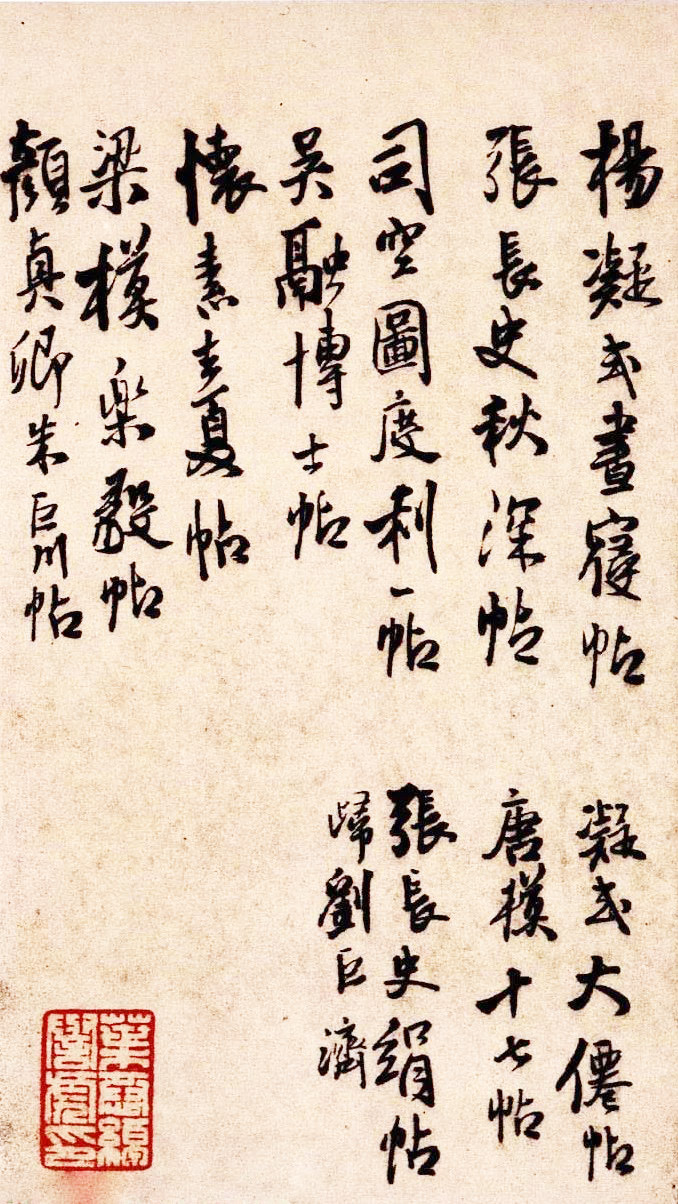 楊凝式晝寢帖
張長史秋深帖
司空圖度利一帖
吳融博士帖
懷素去夏帖
梁模樂毅帖
顏真卿朱巨川帖
凝式大僊帖
唐模十七帖
張長史絹帖
歸劉巨濟